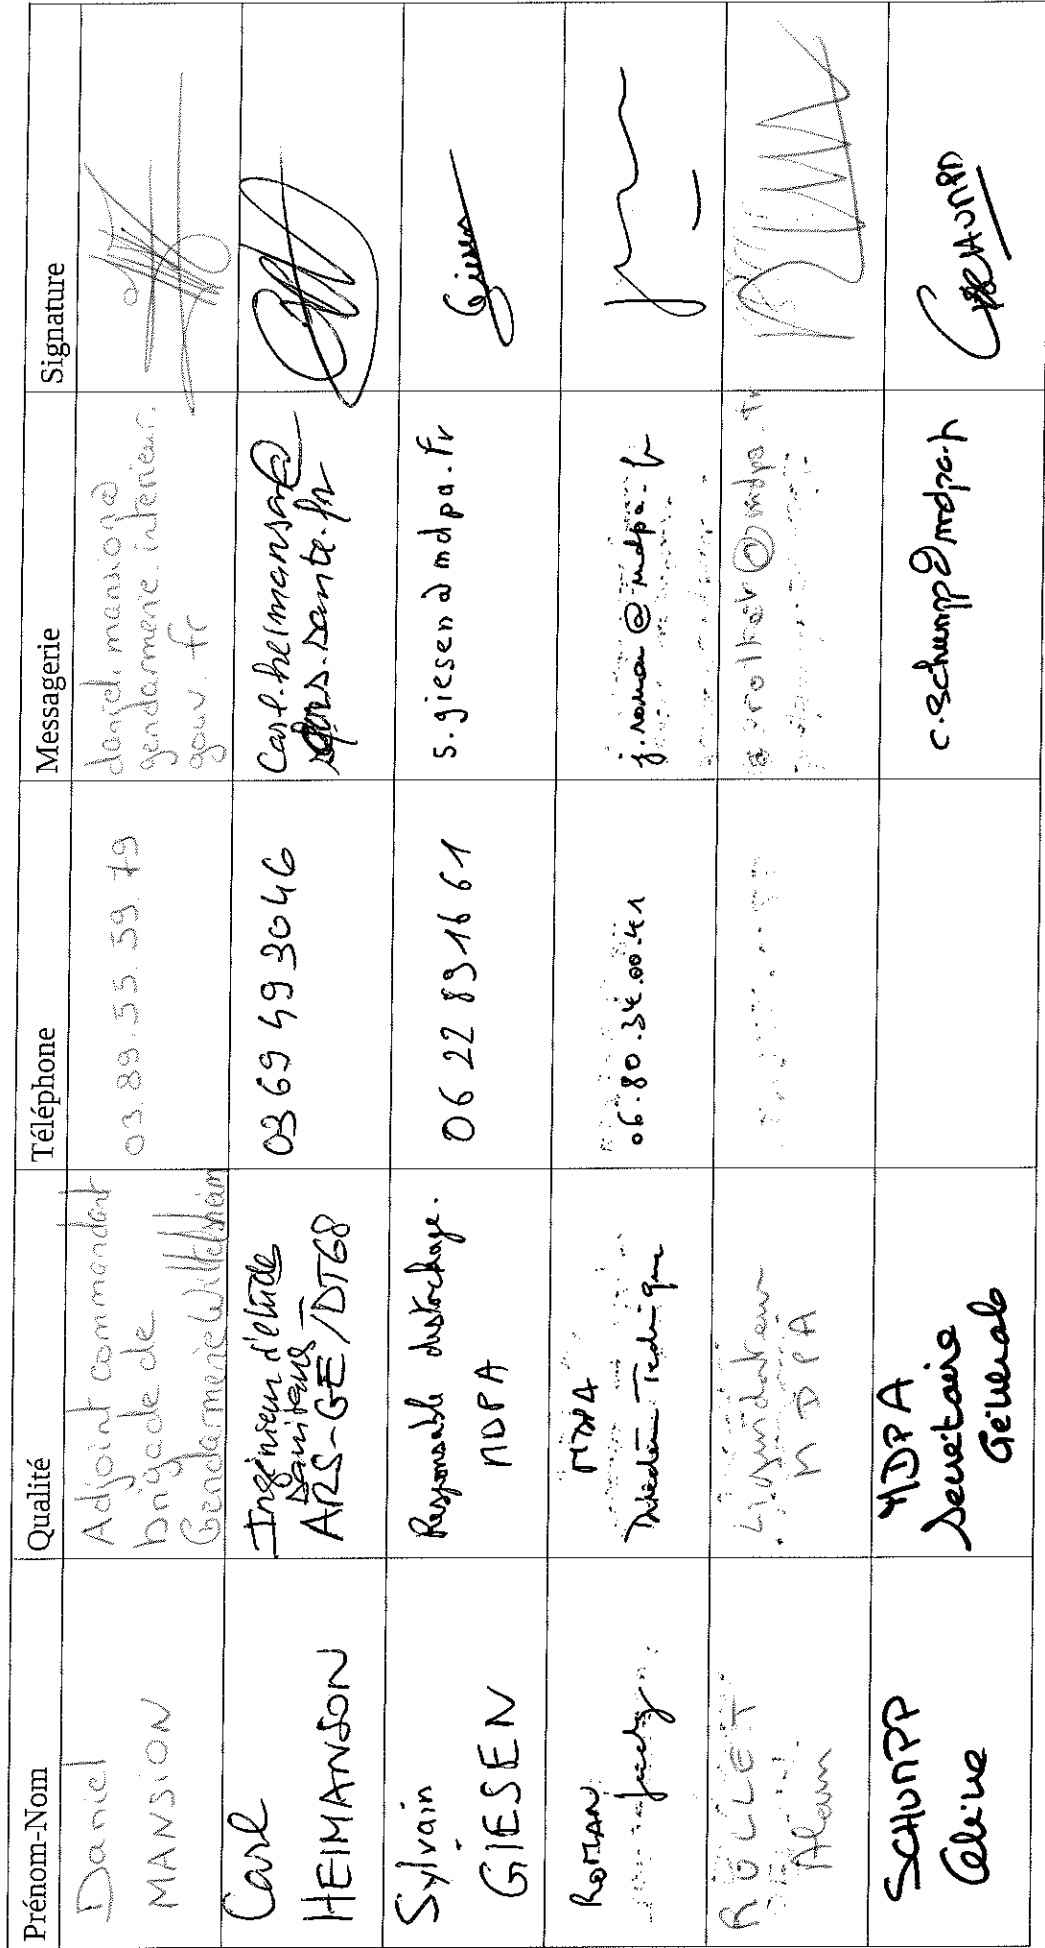 Prénom-Nom Qualité Téléphone Messagerie Signature
Daniel
MANSION
Adjoint commandant
brigade de
Gendarmerie Wittelsheim
03.89.55.59.79
daniel.mansion@
gendarmerie.interieur.
gouv.fr
Carl
HEIMANSON
Ingénieur d'étude
sanitaire
ARS-GE/DT68
03 69 49 30 46
Carl.heimanson@
ars.sante.fr
Sylvain
GIESEN
Responsable destockage.
MDPA
06 22 89 16 61
s.giesen@mdpa.fr
Giesen
ROMAN
MDPA
Direction Technique
06.80.34.00.41
j.roman@mdpa.fr
ROLLET
Alain
Liquidateur
MDPA
@mdpa.fr
SCHUMPP
Céline
MDPA
Secrétaire
Générale
c.schumpp@mdpa.fr